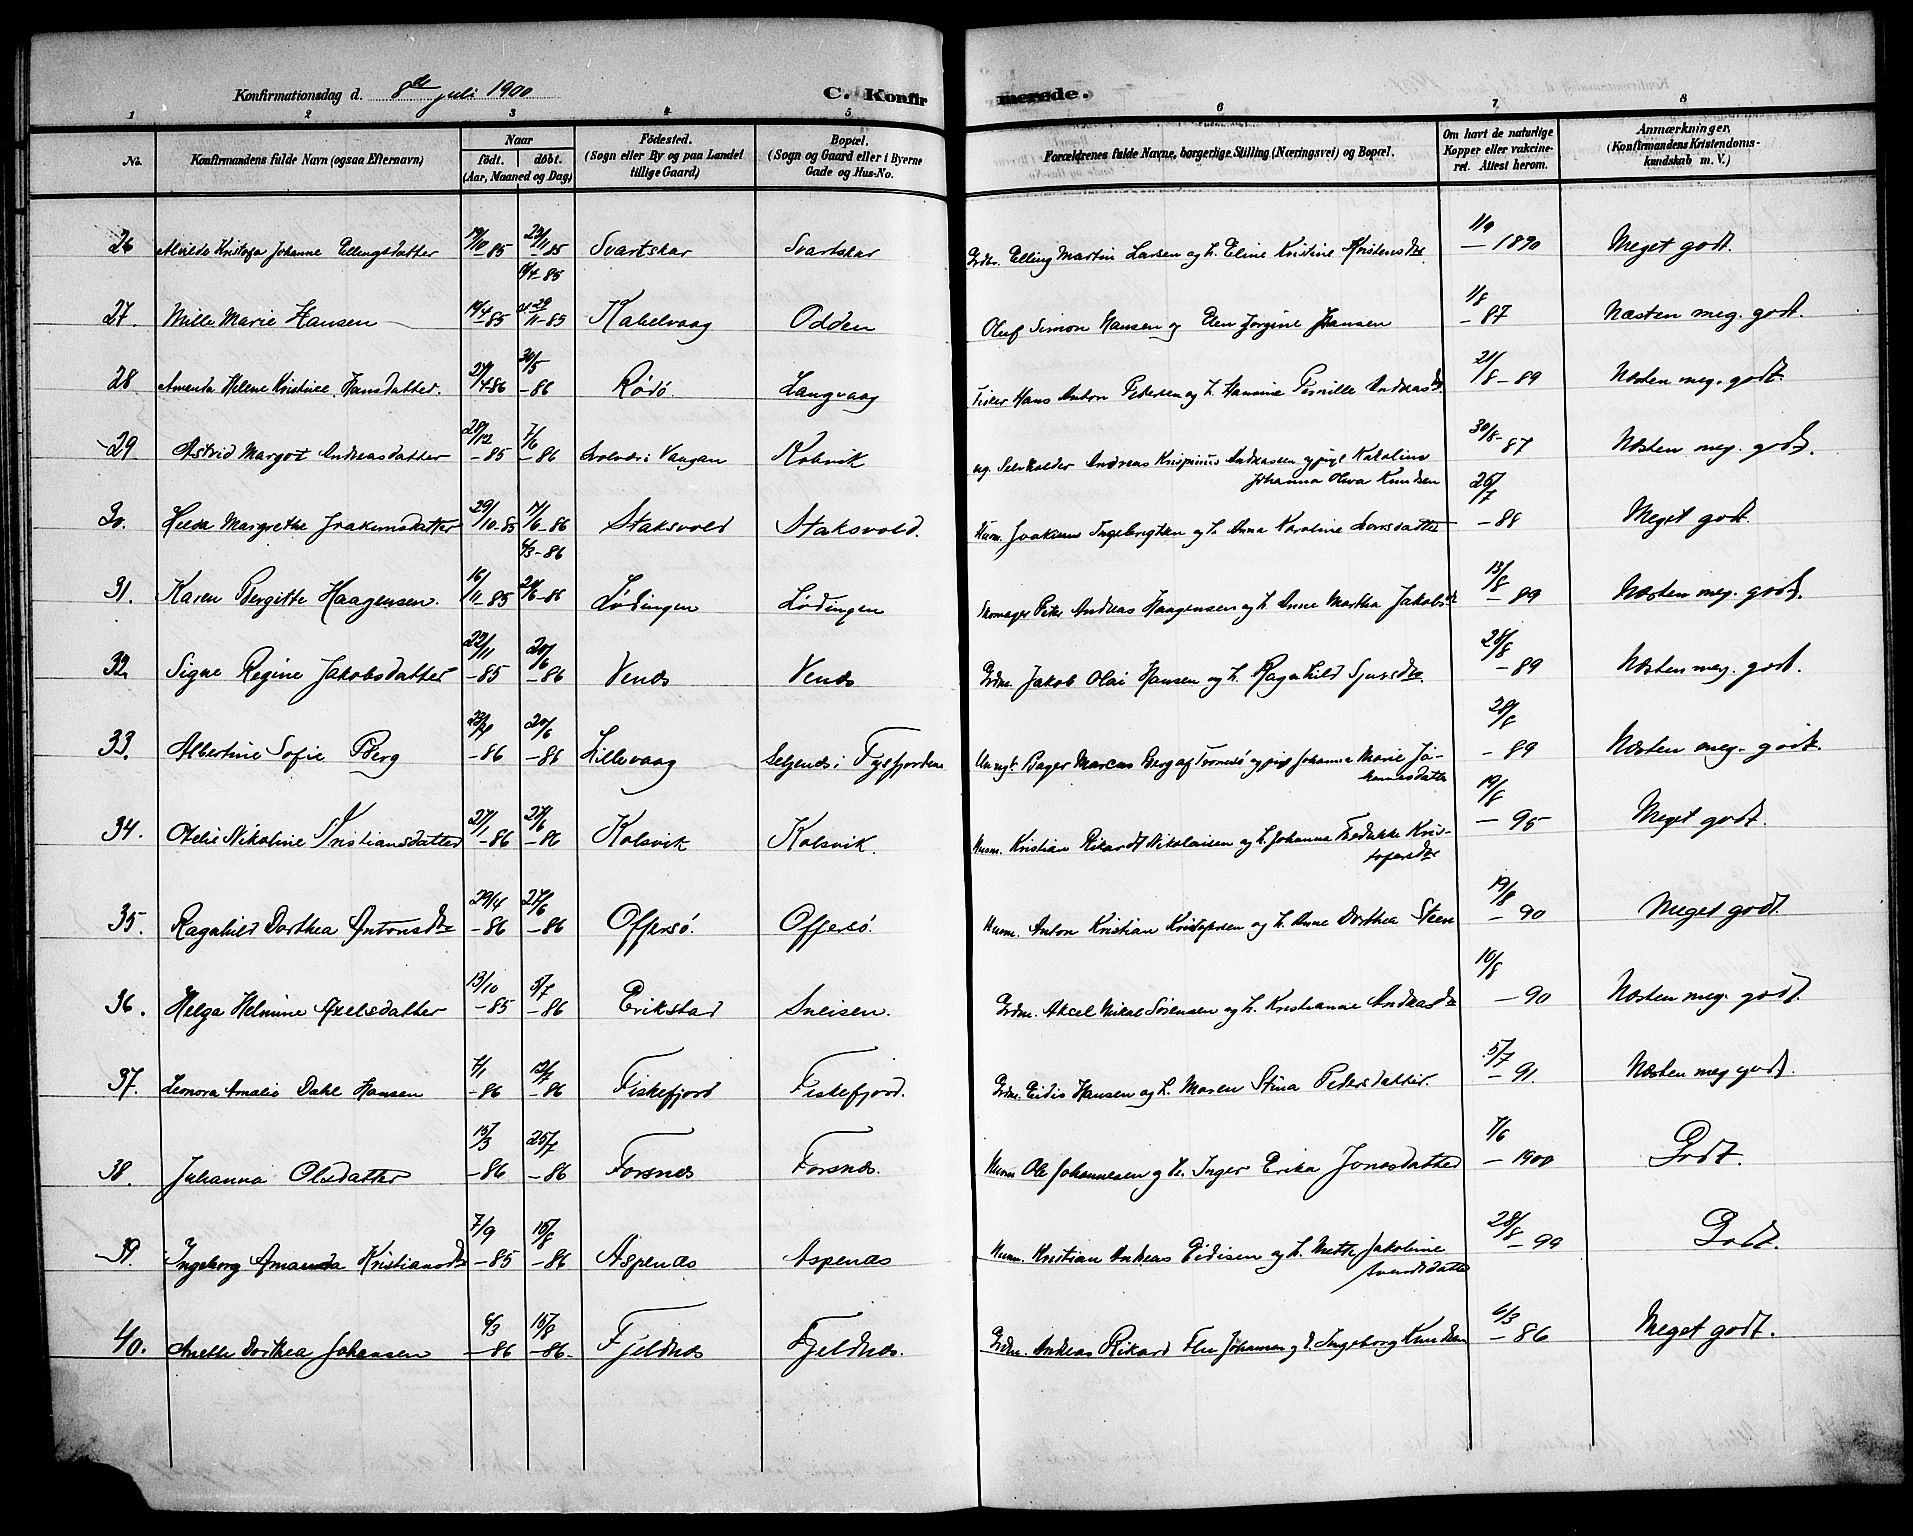 Konfirmationsdag d. 8de juli 1900 C. Konfirmerede.
1 2 3 4 5 6 7 8
No. Konfirmandens fulde Navn (ogsaa Efternavn) Naar født. døbt. (Aar, Maaned og Dag) Fødested. (Sogn eller By og paa Landet tillige Gaard) Bopæl. (Sogn og Gaard eller i Byerne Gade og Hus-No. Forældrenes fulde Navne, borgerlige Stilling (Næringsvei) og Bopæl. Om havt de naturlige Kopper eller vakcineret. Attest herom. Anmærkninger. (Konfirmandens Kristendomskundskab m. V.)
26 Alvilde Kristofa Johanne Ellingsdatter 19/10-85 Svartskar Svartskar Elling Martin Larsen og h. Eline Kristine Kristensdtr 1/9 - 1890 Meget godt.
27. Mille Marie Hansen 19/4-85 29/11-85 Kabelvaag Odden Oluf Simon Hansen og Elen Jørgine Hansen 1/8 - 87 Næsten meg. godt.
28 Amanda Helene Kristine Hansdatter. 27/4 86 30/5 - 86 Rødø. Langvaag Fisker Hans Anton Pedersen og h. Hannine Pernille Andreasd. 21/8 - 89 Næsten meg. godt.
29 Astrid Margot Andreasdatter 28/12 - 85 7/6 - 86 Svolvær i Vaagan Kobvik ug. Selveholder Andreas Krispinus Andreassen og pige Karoline Johanna Olava Knudsen 30/8 - 87 Næsten meg. godt.
30. Helda Margrethe Joakimsdatter 29/10 85 14/6 - 86 6/3 - 86 Staksvold Staksvold. Husm. Joakim Ingebrigtsen og h. Anna Karoline Larsdatter 26/7 - 88 Meget godt.
31. Karen Bergitte Haagensen. 16/11-85 Lødingen Lødingen Skomager Peter Andreas Haagensen og h. Anne Martha Jakobsdtr 13/8 - 89 Næsten meg. godt.
32 Signe Regine Jakobsdatter 22/11 - 85 20/6 - 86 Venæs Venæs Grdm. Jakob Olai Hansen og h. Ragnhild Sjursdtr. 28/8 - 89 Næsten meg. godt.
33. Albertine Sofie Berg - 86 20/6 - 86 Lillevaag i Tysfjorden Ungk. Bager Marcus Berg af Tromsø og pige Johanna Marie Johannesdatter 28/8 - 89 Næsten meg. godt.
34. Otelie Nikoline Kristiansdatter 27/1 - 86 27/6 - 86 Kobvik Kobvik. Husm. Kristian Rikardt Nikolaisen og h. Johanna Fredrikke Kristofersdtr 19/8 - 95 Meget godt.
35. Ragnhild Dorthea Antonsdtr 29/4 - 86 27/6 - 86 Offersø. Offersø. Husm. Anton Kristian Kristofersen og h. Anne Dorthea Steen 19/8 - 90 Meget godt.
36. Helga Helmine Axelsdatter 13/10 - 85 5/7 - 86 Erikstad Sneisen. Grdm. Aksel Mikal Sørensen og h. Kristianne Andreasdtr 10/8 - 90 Næsten meg. godt.
37. Leonora Amalie Dahl Hansen - 86 - 86 Fiskefjord Fiskefjord. Grdm. Eidis Hansen og h. Maren Stina Pedersdatter. 5/7 - 91. Næsten meg godt.
38. Johanna Olsdatter 15/3 - 86 25/7 - 86 Forsnæs Forsnæs. Husm Ole Johannesen og h. Inger Erika Jonasdatter 7/6 - 1900 Godt.
39. Ingeborg Amanda Kristiansdtr 7/9 - 85 15/8 - 86 Aspenæs Aspenæs Husm. Kristian Andreas Eidisen og h. Mette Jakobine Svendsdatter 28/8 - 99 Godt.
40. Anette Dorthea Johansen 6/3 - 86 15/8 - 86. Fjeldnæs Fjeldnæs. Grdm. Andreas Rikard Johansen og h. Ingeborg Knudsen 6/3 - 86 Meget godt.